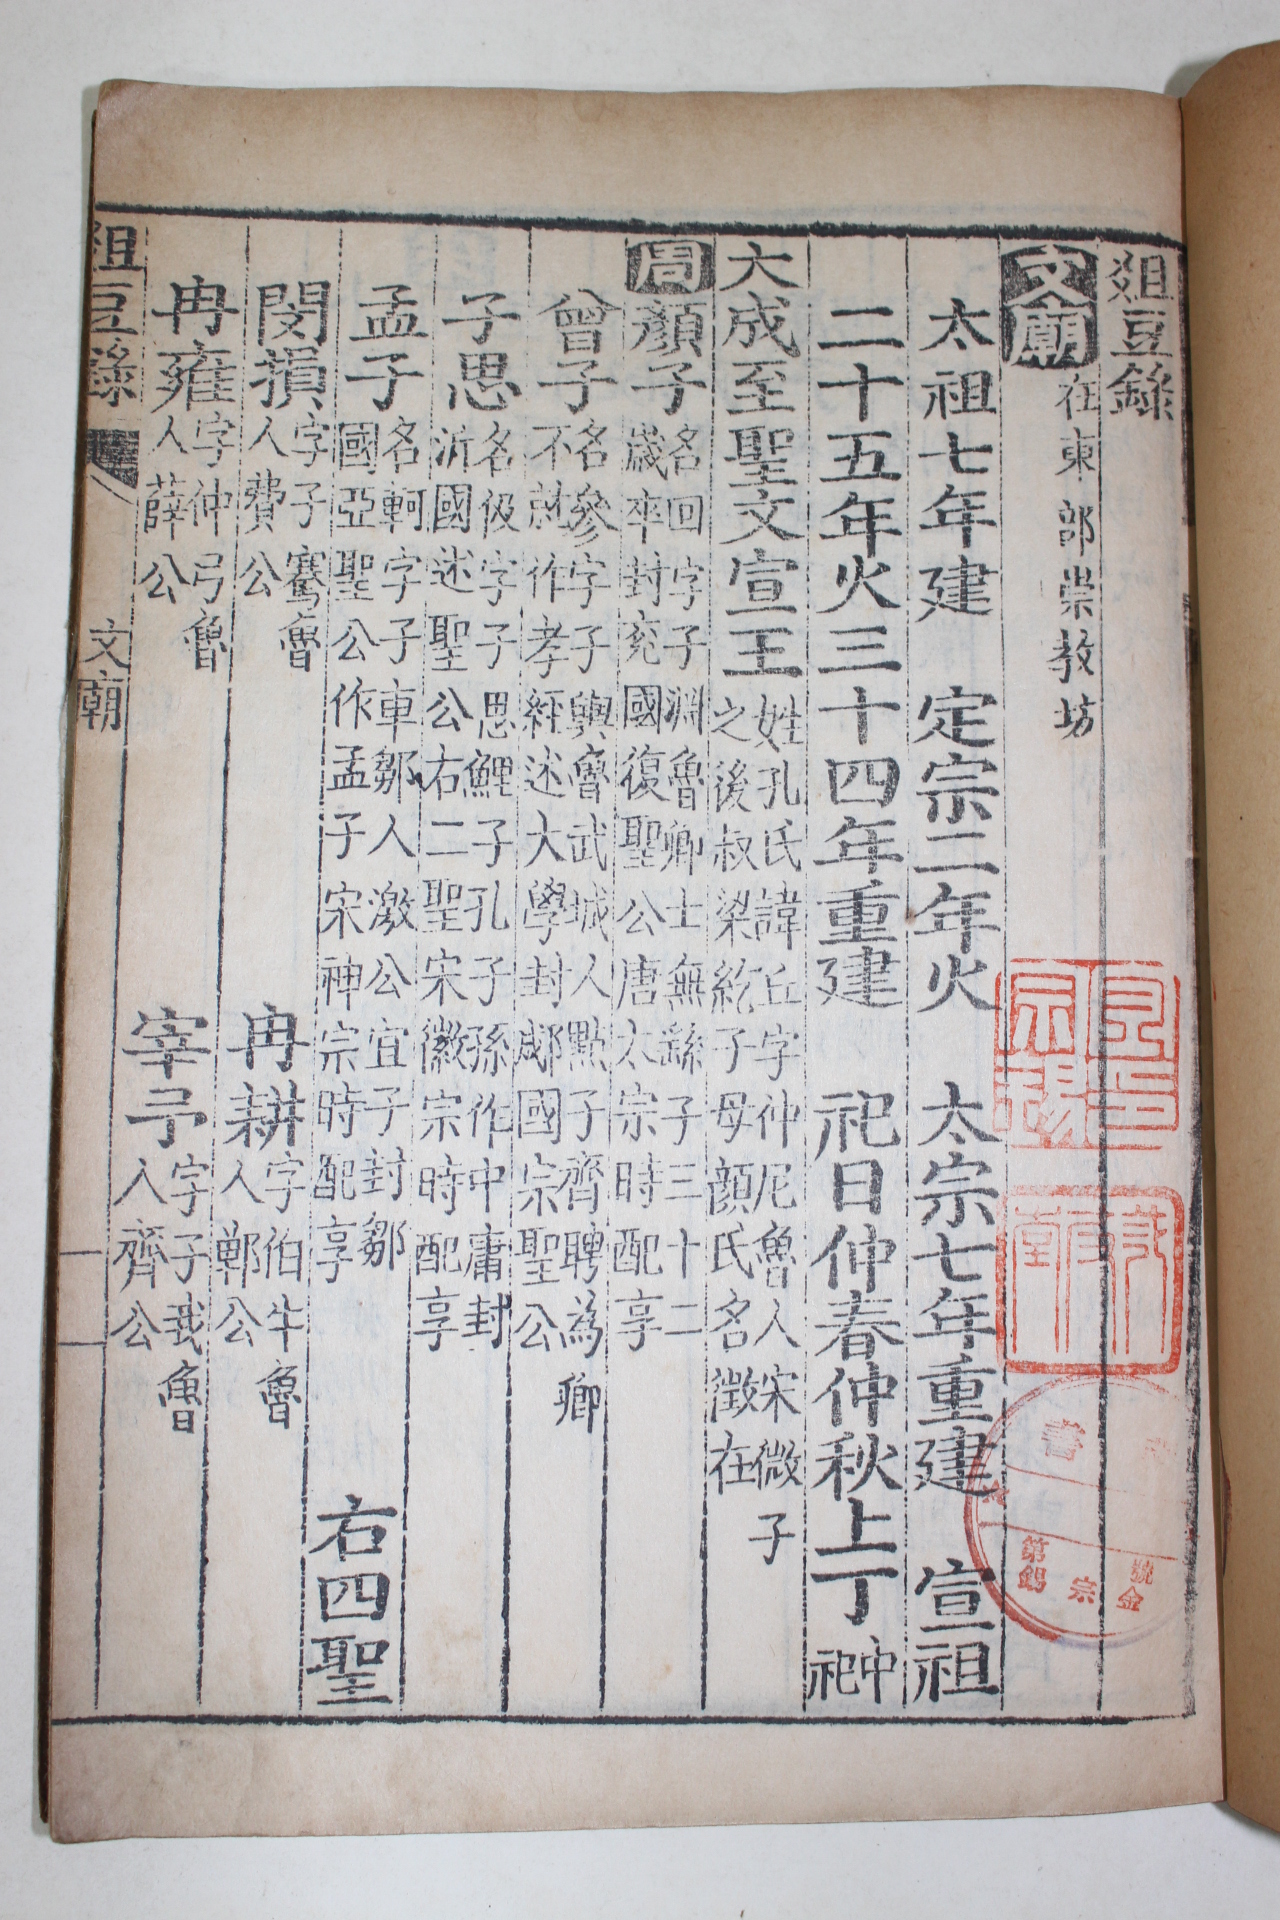 俎豆錄
文廟 在東部崇教坊
太祖七年建 定宗二年火 太宗七年重建 宣祖
二十五年火三十四年重建 祀日仲春仲秋上丁 中祀
大成至聖文宣王 姓孔氏諱丘字仲尼魯人宋微子之後叔梁紇子母顔氏名徵在
周 顏子 名回字子淵魯卿士無繇子三十二歲卒封兗國復聖公唐太宗時配享
曾子 名參字子輿魯武城人點子齊聘為卿不就作孝經述大學封郕國宗聖公
子思 名伋字子思鯉子孔子孫作中庸封沂國述聖公右二聖宋徽宗時配享
孟子 名軻字子車鄒人激公宜子封鄒國亞聖公作孟子宋神宗時配享 右四聖
閔損 字子騫魯人費公 冉耕 字伯牛魯人鄆公
冉雍 字仲弓魯人薛公 宰予 字子我魯人齊公
俎豆錄 文廟 一